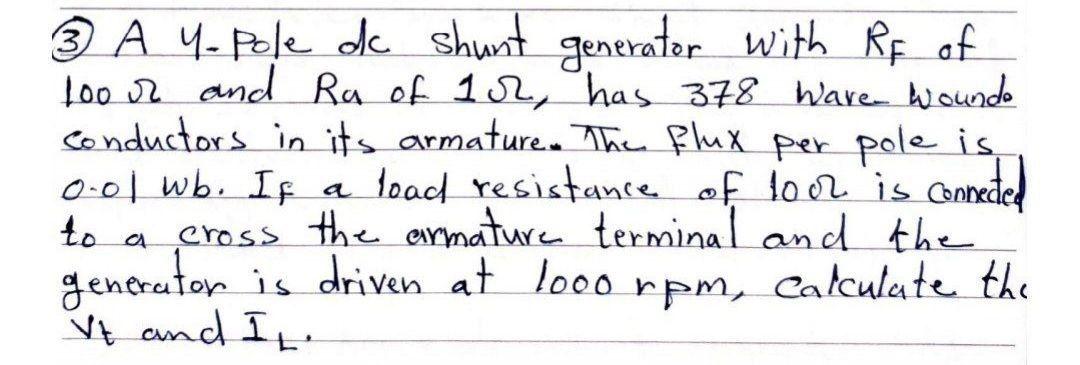 ③ A 4-Pole dc shunt generator with RF of
100 Ω and Ra of 1Ω, has 378 wave-wound
conductors in its armature. The flux per pole is
0.01 wb. If a load resistance of 10Ω is connected
to a cross the armature terminal and the
generator is driven at 1000 rpm, calculate the
Vt and IL.